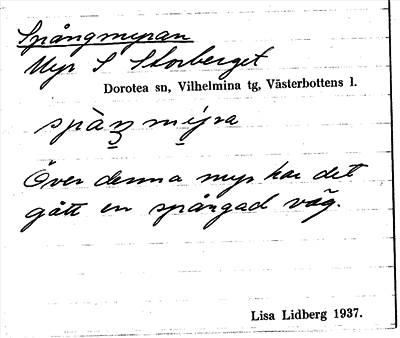 Spångmyran
Myr S Storberget
Dorotea sn, Vilhelmina tg, Västerbottens l.
Över denna myr har det
gått en spångad väg.
Lisa Lidberg 1937.